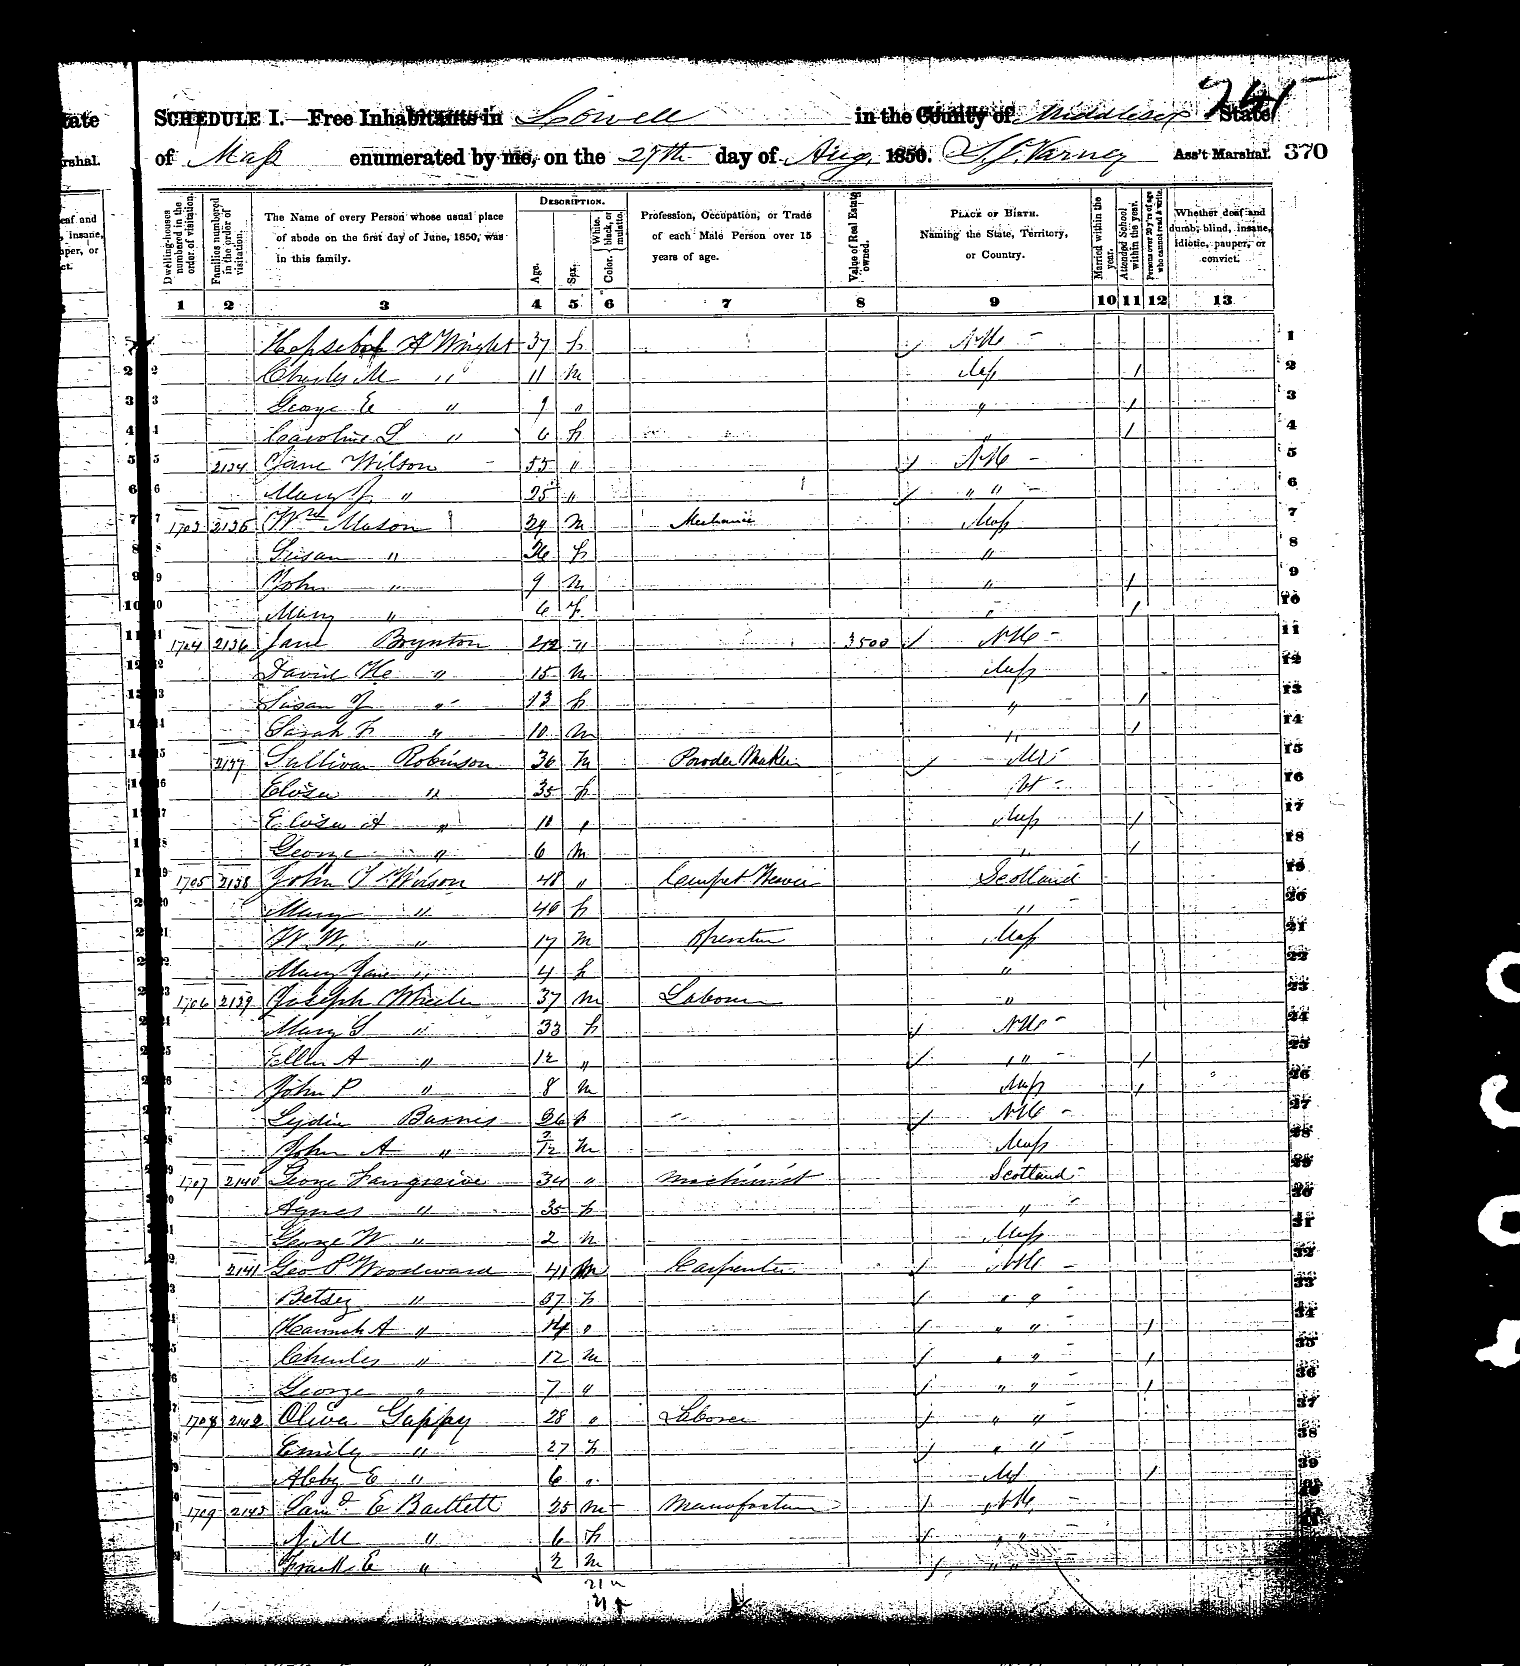 741
SCHEDULE I.—Free Inhabitants in Lowell in the County of Middlesex State
of Mass enumerated by me, on the 27th day of Aug. 1850. S.P. Varney Ass't Marshal. 370
Dwelling-houses numbered in the order of visitation.
Families numbered in the order of visitation.
The Name of every Person whose usual place of abode on the first day of June, 1850, was in this family.
DESCRIPTION.
Age.
Sex.
Color. White, black, or mulatto.
Profession, Occupation, or Trade of each Male Person over 15 years of age.
Value of Real Estate owned.
PLACE OF BIRTH. Naming the State, Territory, or Country.
Married within the year.
Attended School within the year.
Persons over 20 y'rs of age who cannot read & write.
Whether deaf and dumb, blind, insane, idiotic, pauper, or convict.
1 2 3 4 5 6 7 8 9 10 11 12 13
Hepsebah A Wright 37 f NH - 1
2 Charles M " 11 m Mass / 2
3 George E " 9 " " / 3
4 Caroline L " 6 f " / 4
5 2134 Jane Wilson 55 " NH - 5
6 Mary J. " 25 " " " - 6
7 1703 2135 Wm Mason 39 m Mechanic Mass 7
8 Susan " 36 f " 8
9 John " 9 m " / 9
10 Mary " 6 f " / 10
11 1704 2136 Jane Boynton 42 " 3500 NH - 11
12 David H " 15 m Mass 12
13 Susan J " 13 f " / 13
14 Sarah F " 10 m " / 14
2137 Sullivan Robinson 36 m Powder Maker Me - 15
Eloisa " 35 f Vt - 16
Eloisa A " 10 " Mass / 17
George " 6 m " / 18
1705 2138 John S Wilson 48 " Carpet Weaver Scotland 19
Mary " 40 f " 20
W. W. " 17 m Operative Mass 21
Mary Jane " 4 f " 22
1706 2139 Joseph Wheeler 37 m Laborer " 23
Mary S " 33 f NH - 24
Ellen A " 12 " " " / 25
John P " 8 m Mass / 26
Lydia Barnes 26 f NH - 27
John A " 2/12 m Mass 28
1707 2140 George Fairgreive 34 " Machinist Scotland - 29
Agnes " 35 f " 30
George W " 2 m Mass 31
2141 Geo P Woodward 41 m Carpenter NH - 32
Betsey " 37 f " " 33
Hannah A " 14 " " " / 34
Charles " 12 m " " / 35
George " 7 " " " / 36
1708 2142 Oliva Gappy 28 " Laborer " " 37
Emily " 27 f " " 38
Abby E " 6 " Ms / 39
1709 2143 Saml E Bartlett 25 m Manufacture NH - 40
A M " 6 f " " 41
Frank E " 2 m " "
21 m
21 f